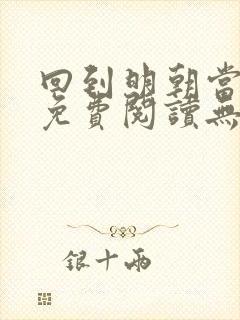 回到明朝當
免費閱讀無
银十兩